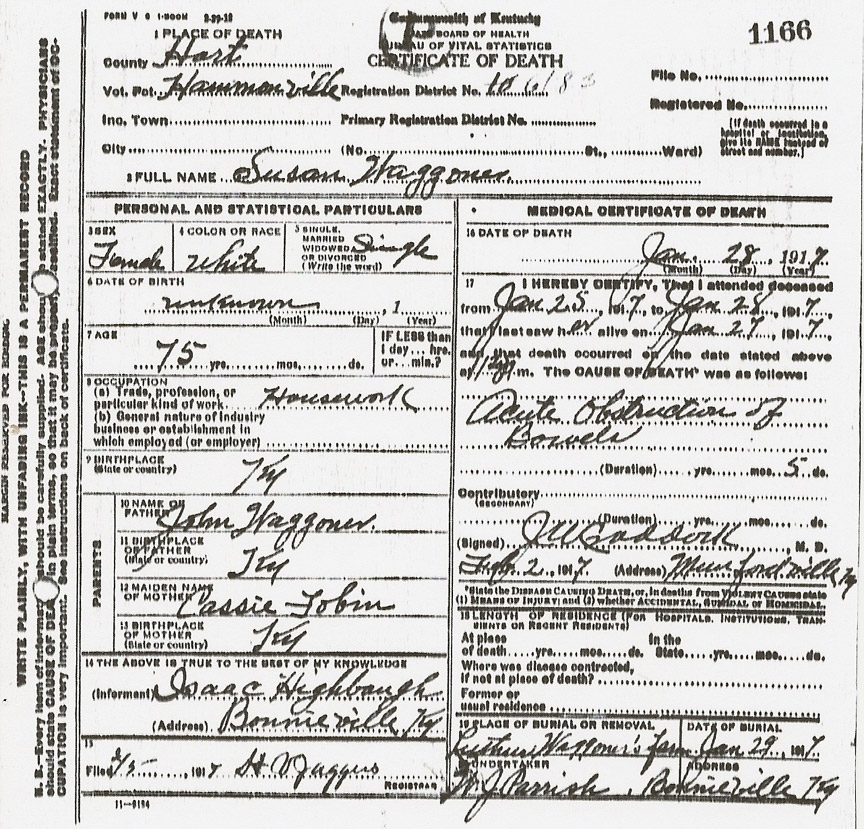 FORM V S 1-500M 2-29-16
Commonwealth of Kentucky
STATE BOARD OF HEALTH
BUREAU OF VITAL STATISTICS
CERTIFICATE OF DEATH
1166
1 PLACE OF DEATH
County Hart
Vot. Pct. Hammonville Registration District No.
File No.
Inc. Town Primary Registration District No.
Registered No.
City (No. St., Ward)
[If death occurred in a hospital or institution, give its NAME instead of street and number.]
2 FULL NAME Susan Waggoner
PERSONAL AND STATISTICAL PARTICULARS
3 SEX Female
4 COLOR OR RACE White
5 SINGLE, MARRIED WIDOWED OR DIVORCED (Write the word) Single
6 DATE OF BIRTH
unknown , 1
(Month) (Day) (Year)
7 AGE
75 yrs. mos. ds.
IF LESS than 1 day... hrs. or... min.?
8 OCCUPATION
(a) Trade, profession, or particular kind of work Housework
(b) General nature of industry business or establishment in which employed (or employer)
9 BIRTHPLACE (State or country) Ky
PARENTS
10 NAME OF FATHER John Waggoner
11 BIRTHPLACE OF FATHER (State or country) Ky
12 MAIDEN NAME OF MOTHER Cassie Tobin
13 BIRTHPLACE OF MOTHER (State or country) Ky
14 THE ABOVE IS TRUE TO THE BEST OF MY KNOWLEDGE
(Informant) Isaac Highbaugh
(Address) Bonnieville Ky
15
Filed 2/5, 1917 H V Jaggers
REGISTRAR
11-9194
MEDICAL CERTIFICATE OF DEATH
16 DATE OF DEATH
Jan. 28, 1917
(Month) (Day) (Year)
17 I HEREBY CERTIFY, That I attended deceased
from Jan 25, 1917, to Jan 28, 1917,
that I last saw her alive on Jan 27, 1917,
and that death occurred on the date stated above
at m. The CAUSE OF DEATH* was as follows:
Acute Obstruction of
Bowels
(Duration) yrs. mos. 5 ds.
Contributory
(SECONDARY)
(Duration) yrs. mos. ds.
(Signed) , M. D.
Feb. 2, 1917 (Address) Munfordville Ky
*State the DISEASE CAUSING DEATH, or, in deaths from VIOLENT CAUSES state
(1) MEANS OF INJURY; and (2) whether ACCIDENTAL, SUICIDAL or HOMICIDAL.
18 LENGTH OF RESIDENCE (FOR HOSPITALS, INSTITUTIONS, TRANSIENTS OR RECENT RESIDENTS)
At place In the
of death yrs. mos. ds. State yrs. mos. ds.
Where was disease contracted,
if not at place of death?
Former or
usual residence
19 PLACE OF BURIAL OR REMOVAL DATE OF BURIAL
Luther Waggoner's farm Jan 29, 1917
20 UNDERTAKER ADDRESS
W J Parrish Bonnieville Ky
MARGIN RESERVED FOR BINDING
WRITE PLAINLY, WITH UNFADING INK—THIS IS A PERMANENT RECORD
N. B.—Every item of information should be carefully supplied. AGE should be stated EXACTLY. PHYSICIANS
should state CAUSE OF DEATH in plain terms, so that it may be properly classified. Exact statement of OC-
CUPATION is very important. See instructions on back of certificate.